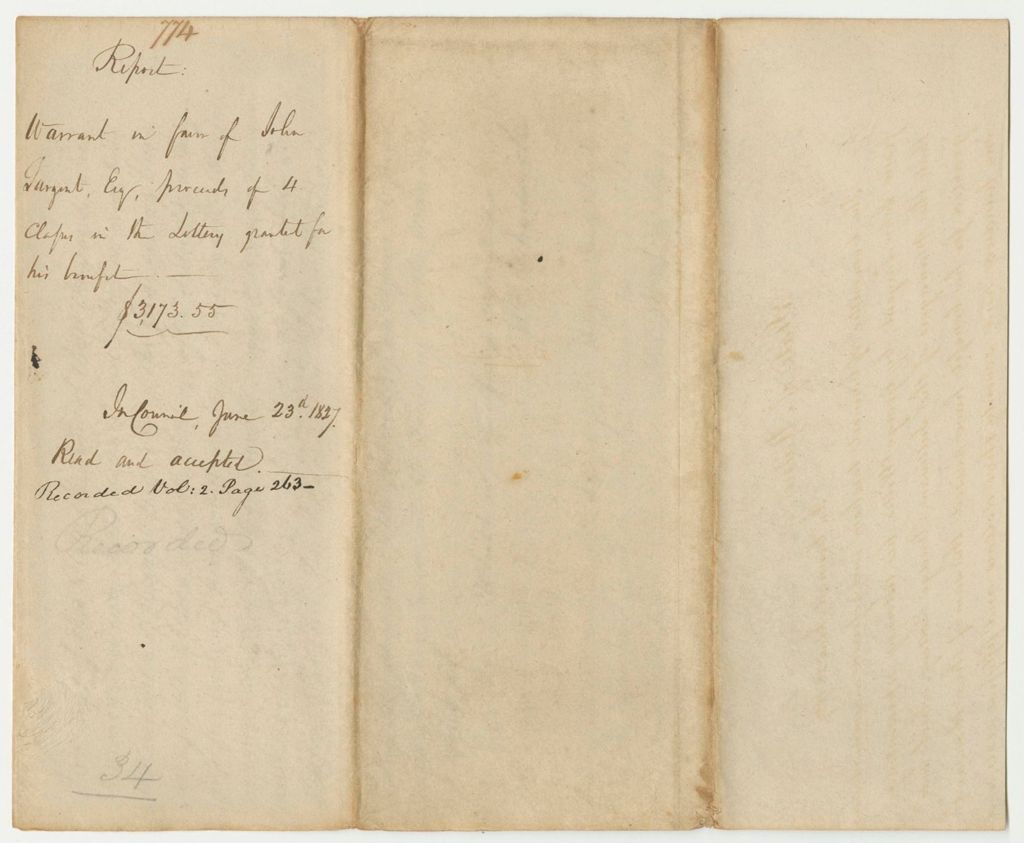 774
Report:
Warrant in favor of John
Sargent, Esq, proceeds of 4
Classes in the Lottery granted for
his benefit. —
$3,173.55
In Council, June 23d. 1827.
Read and accepted.
Recorded Vol: 2. Page 263—
Recorded
34